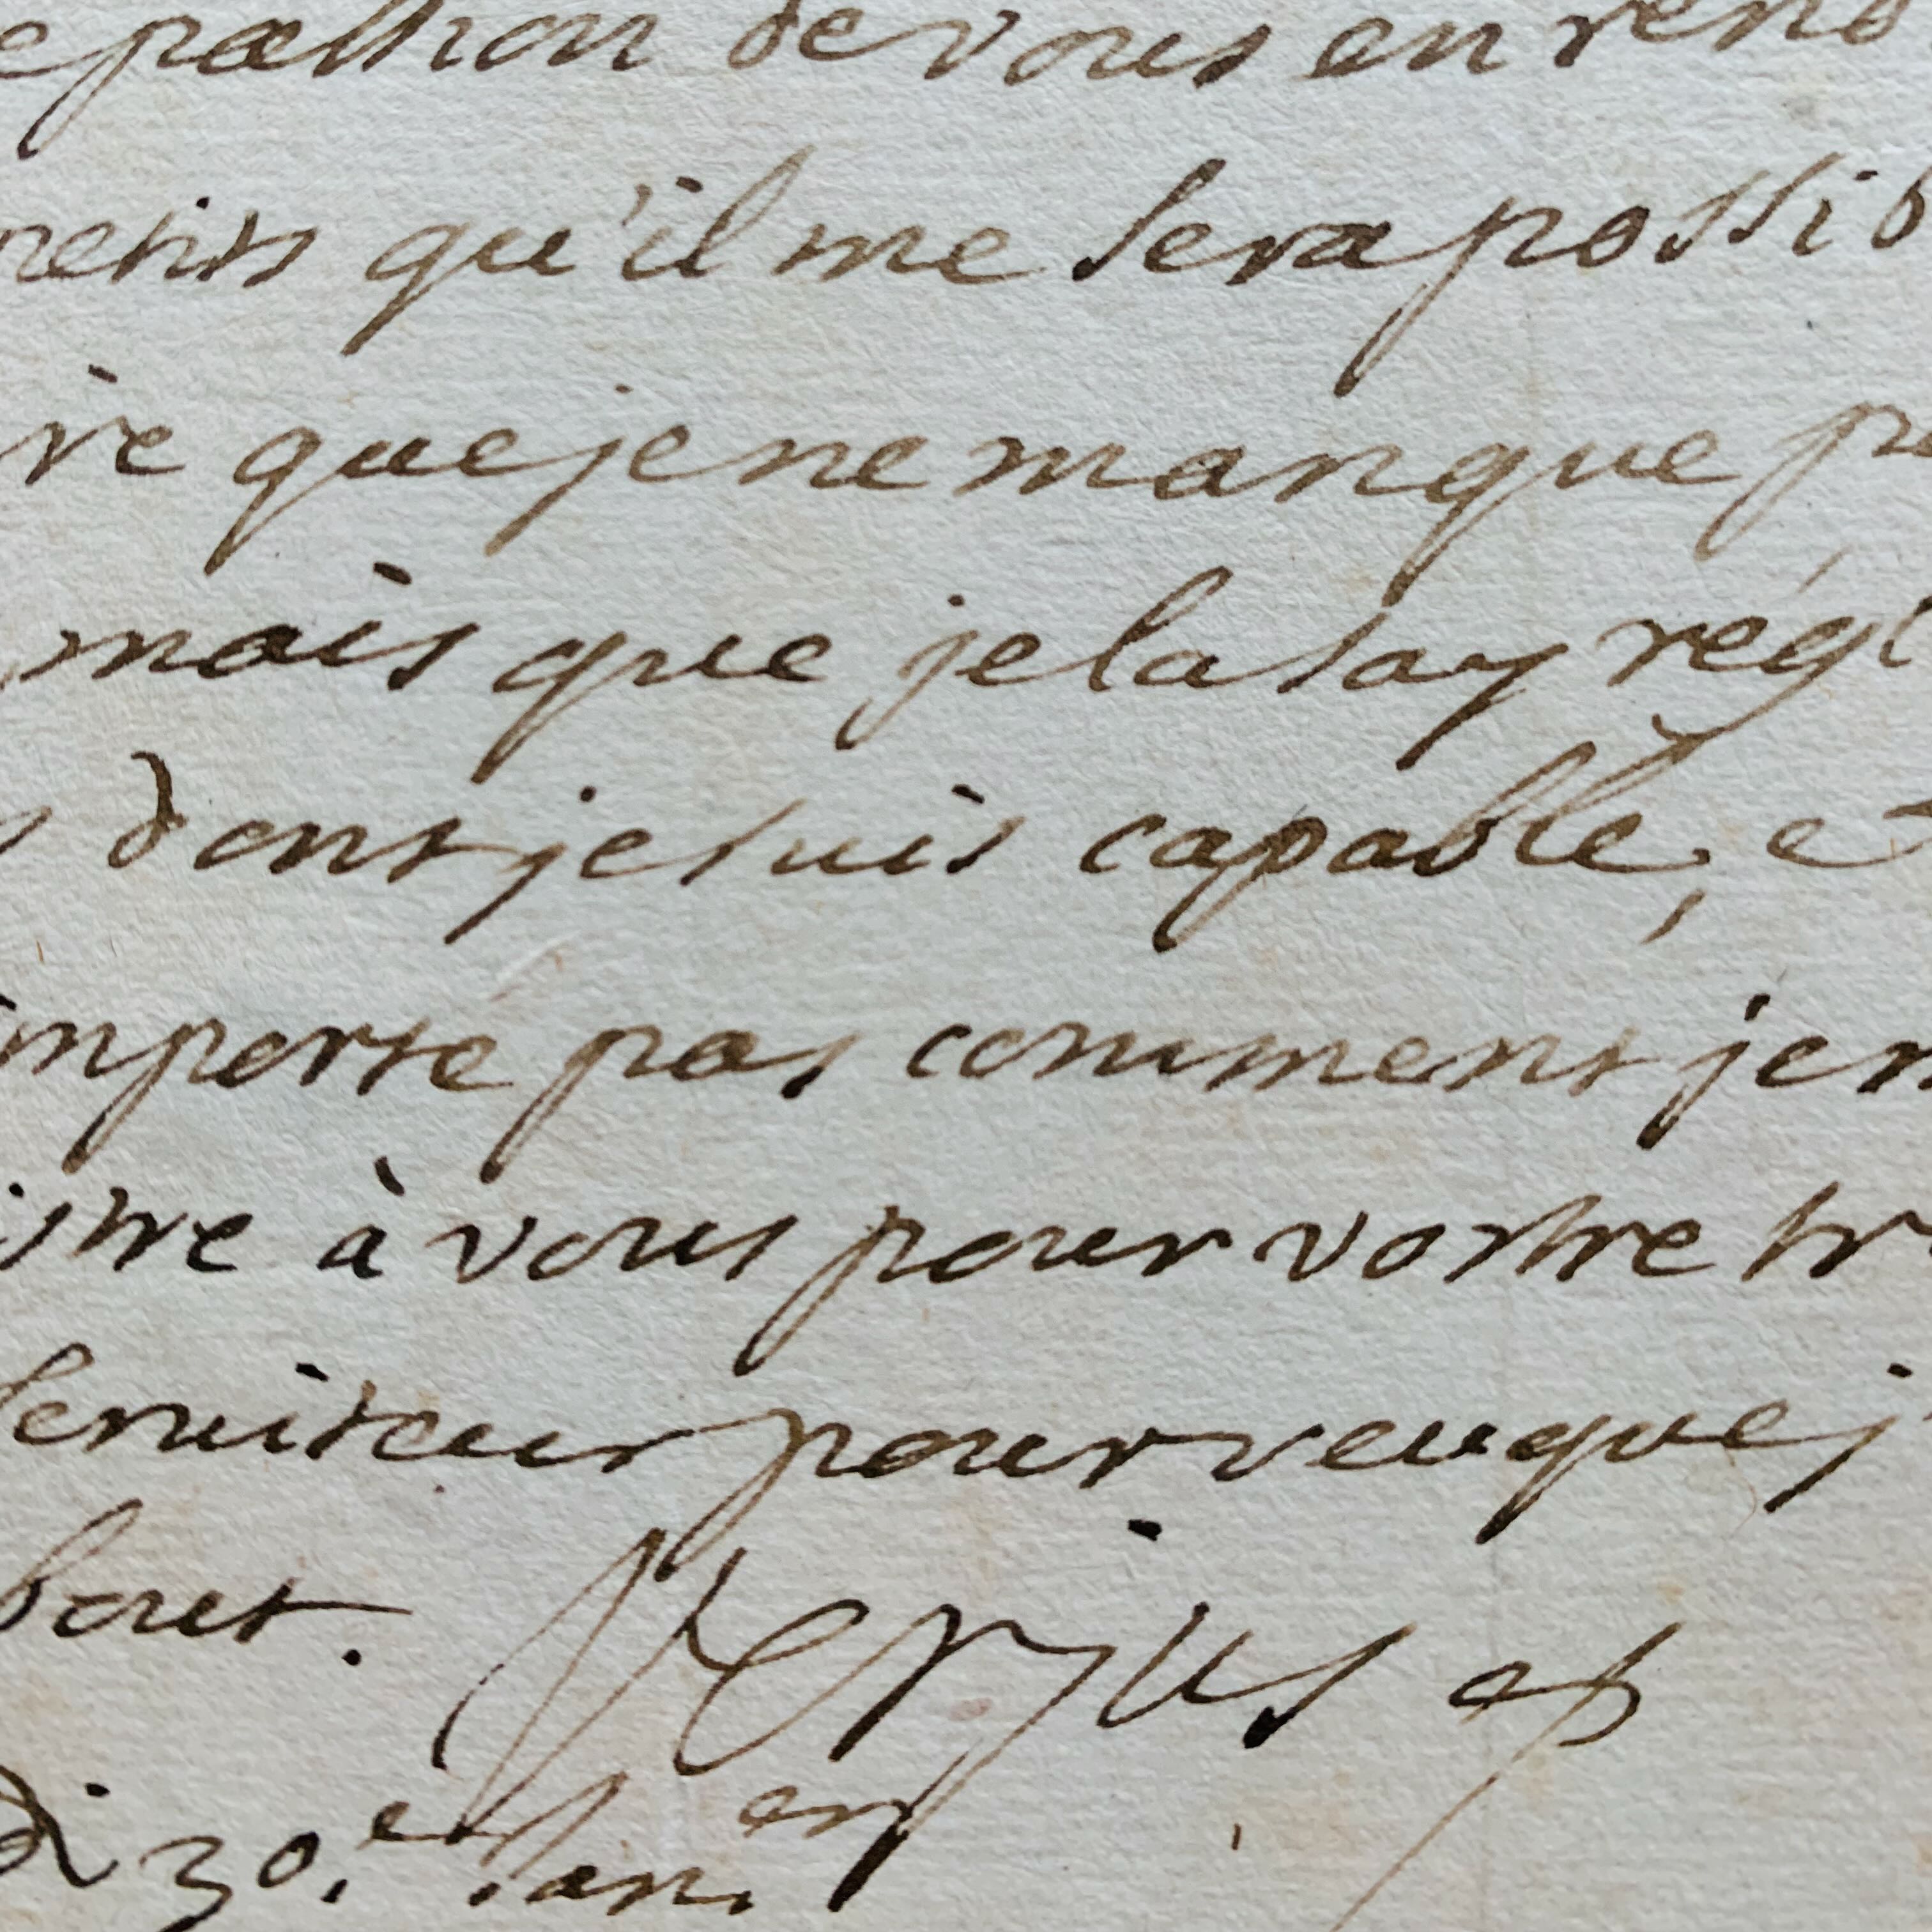 passion de vous en rend
qu'il me sera possib
re que je ne manque
mais que je la say régl
dont je suis capable, e
importe pas comment je
istre à vous pour vostre tr
seruiteur pourveu que j
bout. Verjus
di 30.e Jan.er